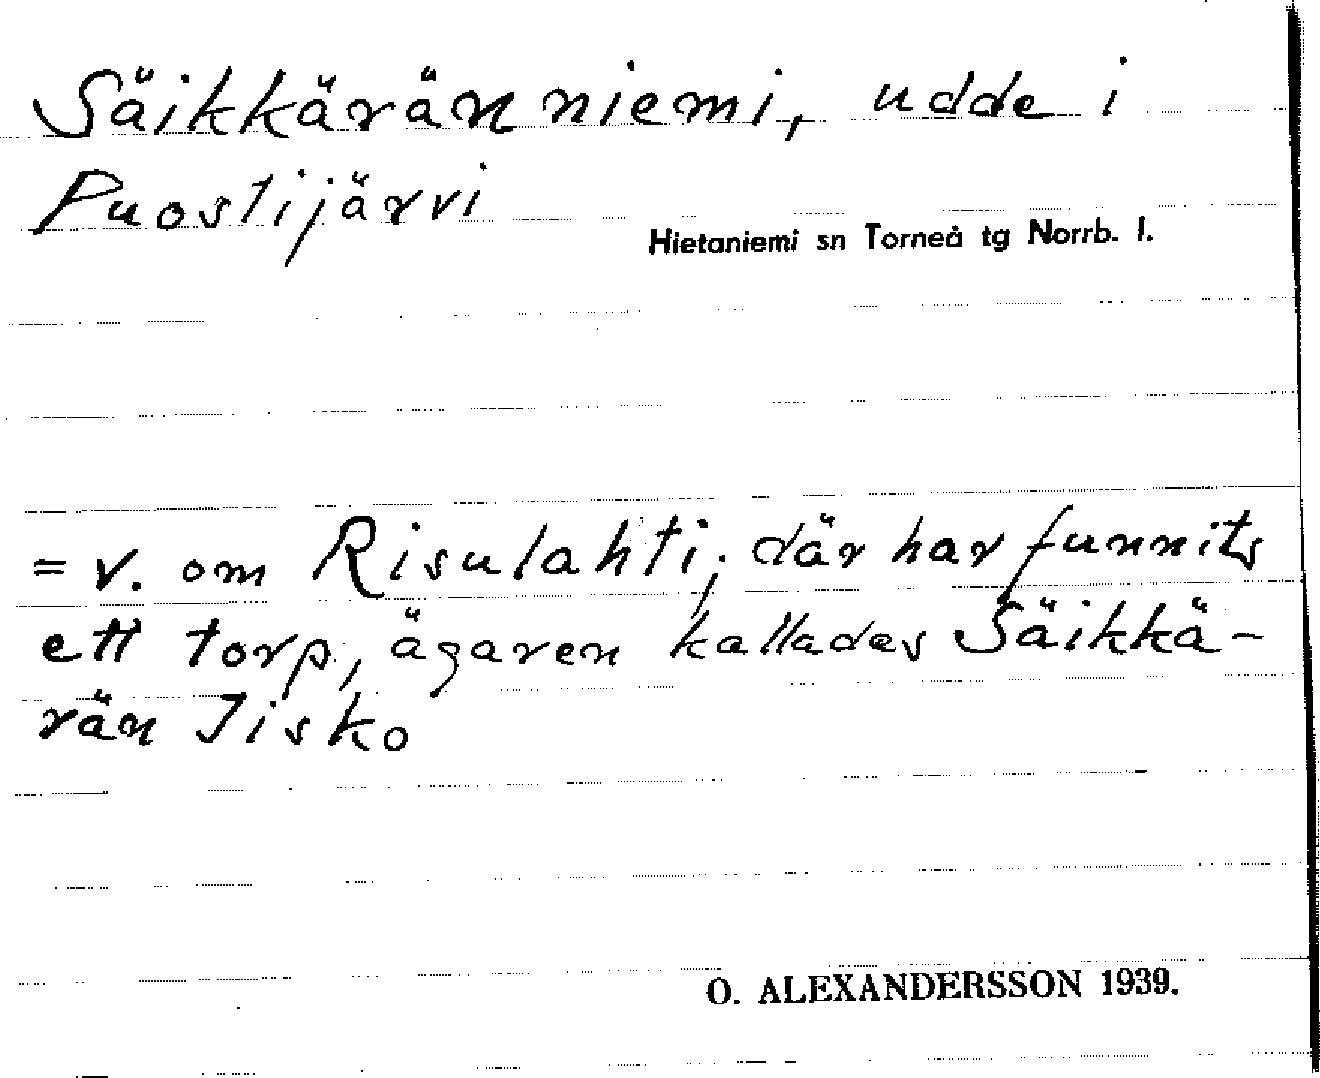 Säikkäränniemi, udde i
Puostijärvi
Hietaniemi sn Torneå tg Norrb. l.
= v. om Risulahti; där har funnits
ett torp, ägaren kallades Säikkä-
rän Iisko
O. ALEXANDERSSON 1939.